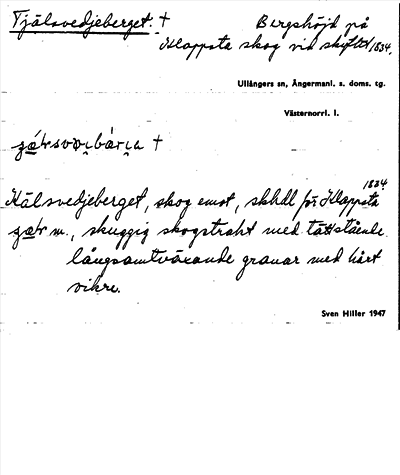 Tjälsvedjeberget. + Bergshöjd på
Klappsta skog vid skiftet 1834.
Ullångers sn, Ångermanl. s. doms. tg.
Västernorrl. l.
Kälsvedjeberget, skog emot, skhdl för Klappsta 1834
m., skuggig skogstrakt med tättstående
långsamtväxande granar med hårt
virke.
Sven Hiller 1947